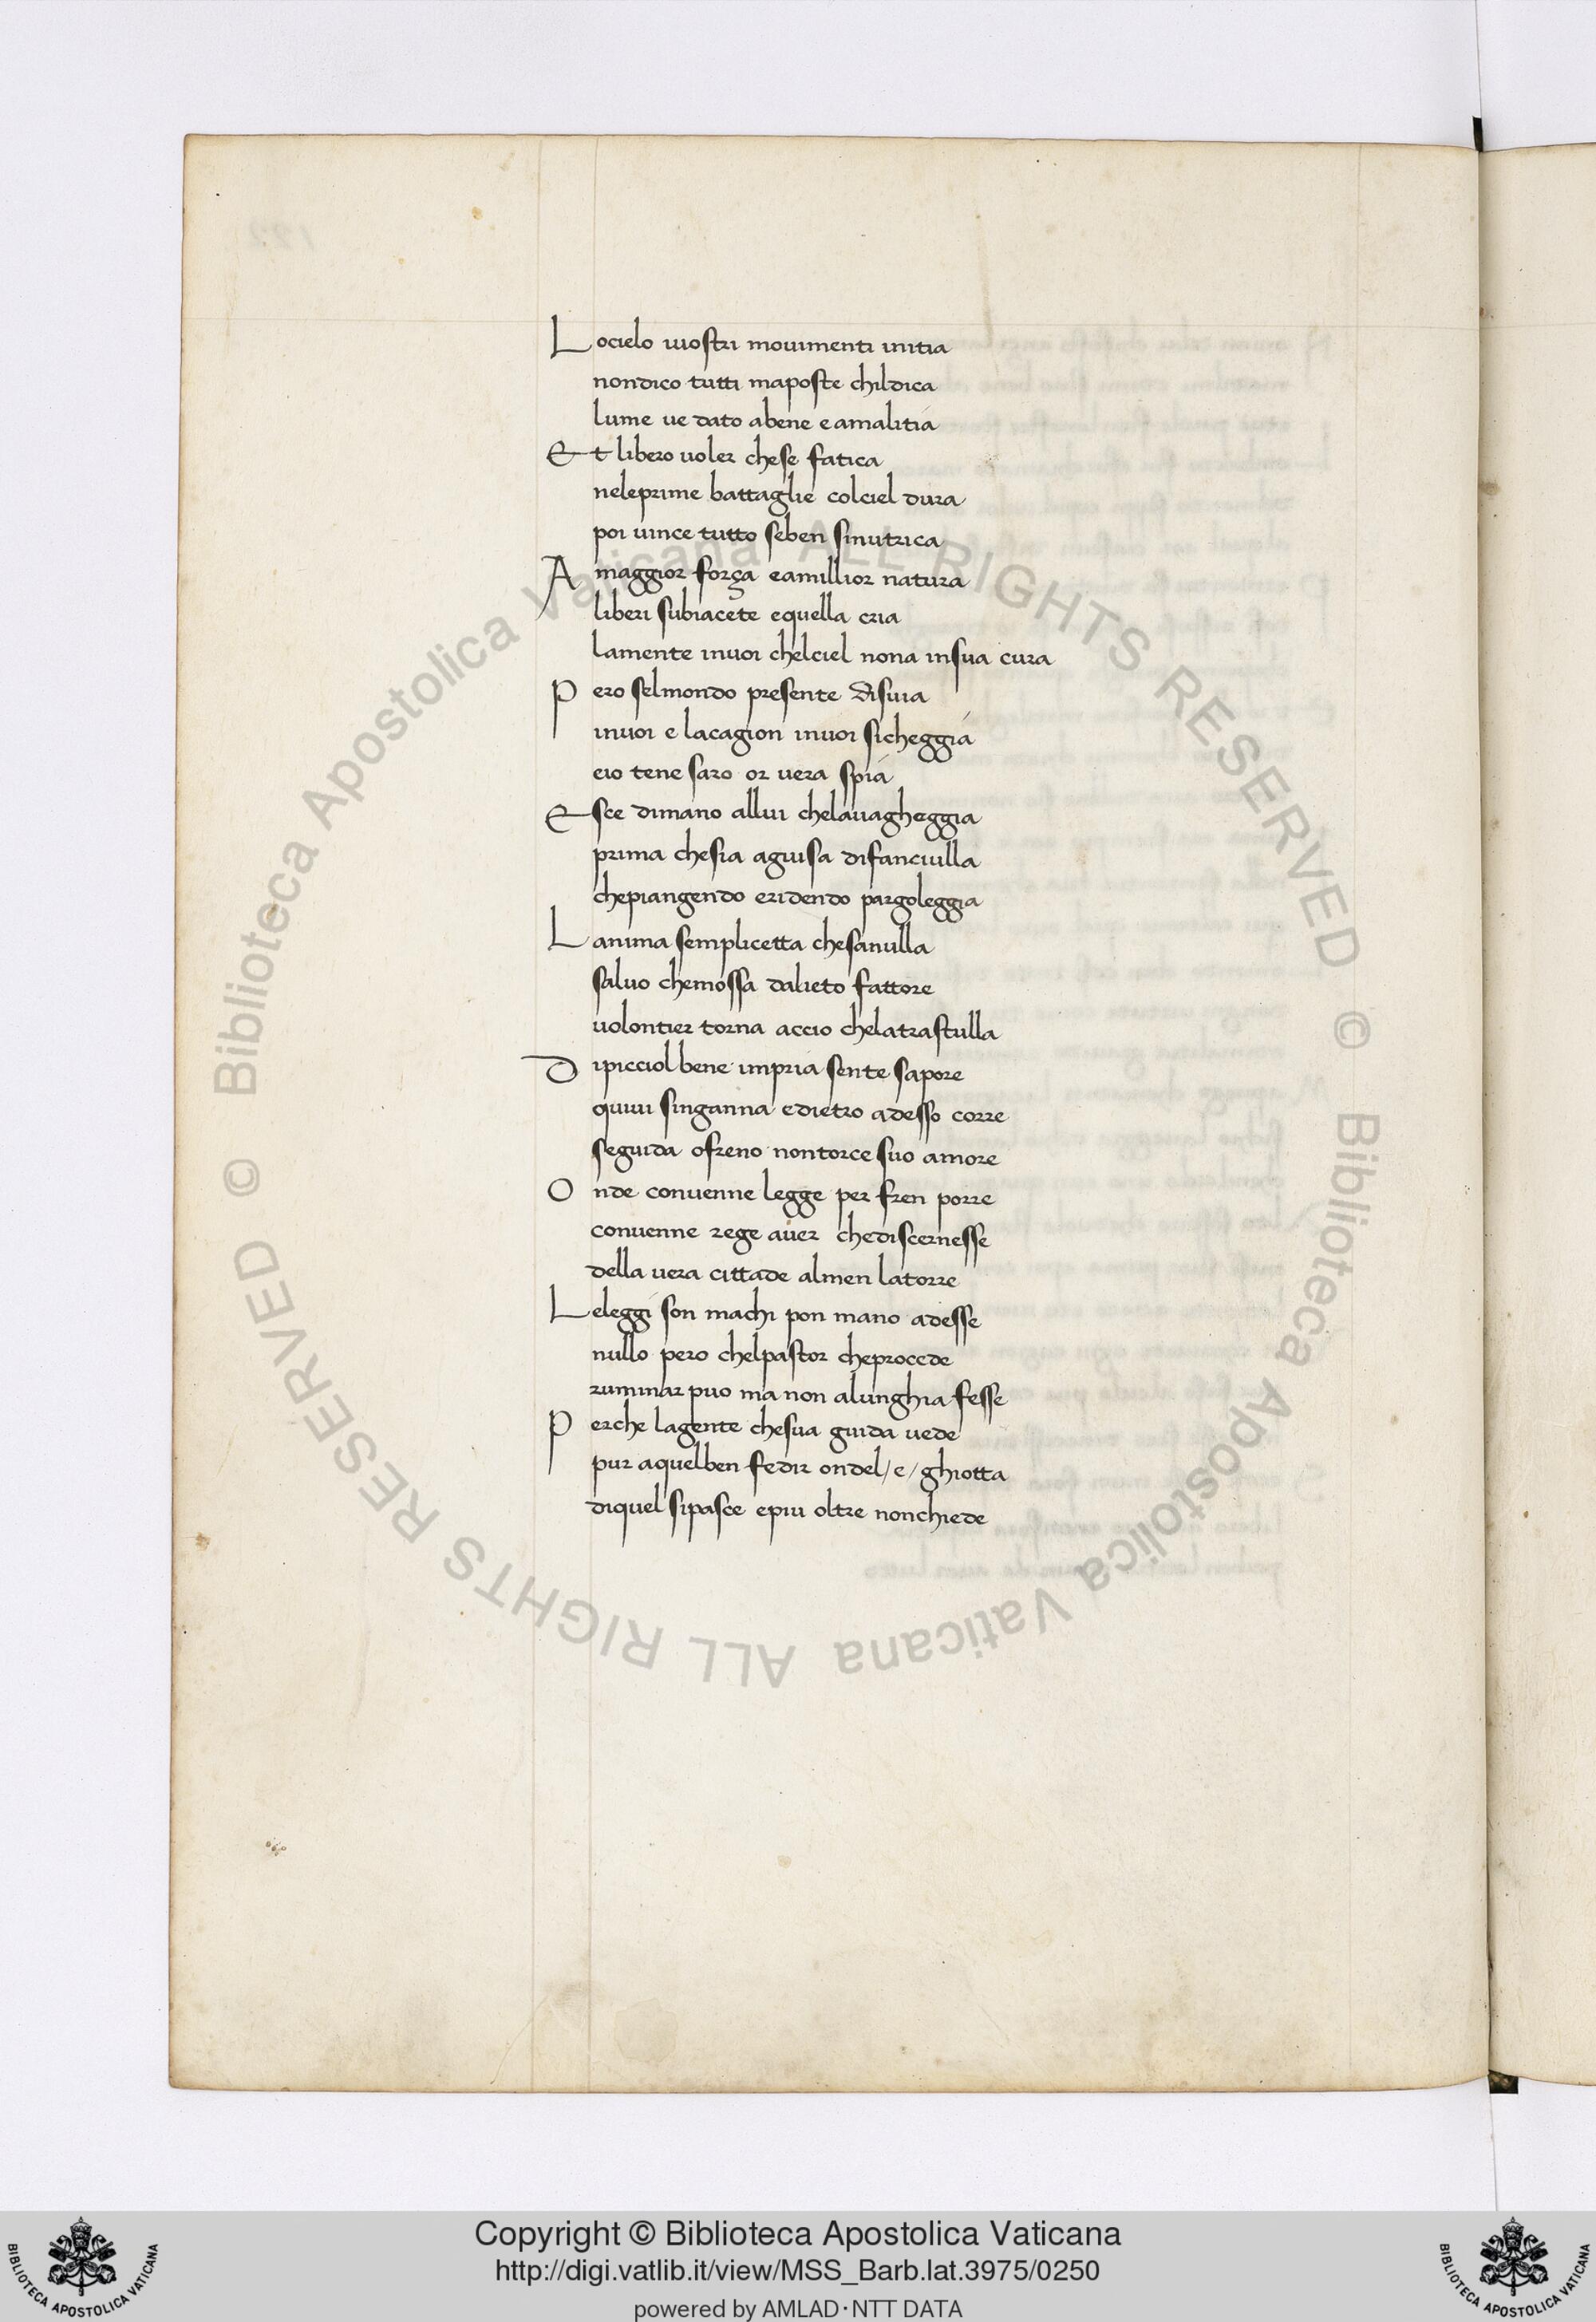 Locielo ivostri movimenti initia
nondico tutti maposte childica
lume ve dato abene eamalitia
Et libero voler chese fatica
neleprime battaglie colciel dura
poi vince tutto seben sinutrica
A maggior força eamillior natura
liberi subiacete equella cria
lamente invoi chelciel nona insua cura
Pero selmondo presente disvia
invoi e lacagion invoi sicheggia
eio tene saro or vera spia
Esce dimano allui chelavagheggia
prima chesia aguisa difanciulla
chepiangendo eridendo pargoleggia
Lanima semplicetta chesanulla
salvo chemossa dalieto fattore
volontier torna accio chelatrastulla
Dipicciol bene impria sente sapore
quivi singanna edietro adesso corre
seguida ofreno nontorce suo amore
Onde convenne legge per fren porre
convenne rege aver chediscernesse
della vera cittade almen latorre
Leleggi son machi pon mano adesse
nullo pero chelpastor cheprocede
ruminar puo ma non alunghia fesse
Perche lagente chesua guida vede
pur aquelben fedir ondel/e/ghiotta
diquel sipasce epiu oltre nonchiede
© Biblioteca Apostolica Vaticana ALL RIGHTS RESERVED © Biblioteca Apostolica Vaticana ALL RIGHTS RESERVED
Copyright © Biblioteca Apostolica Vaticana
http://digi.vatlib.it/view/MSS_Barb.lat.3975/0250
powered by AMLAD·NTT DATA
BIBLIOTECA APOSTOLICA VATICANA
BIBLIOTECA APOSTOLICA VATICANA